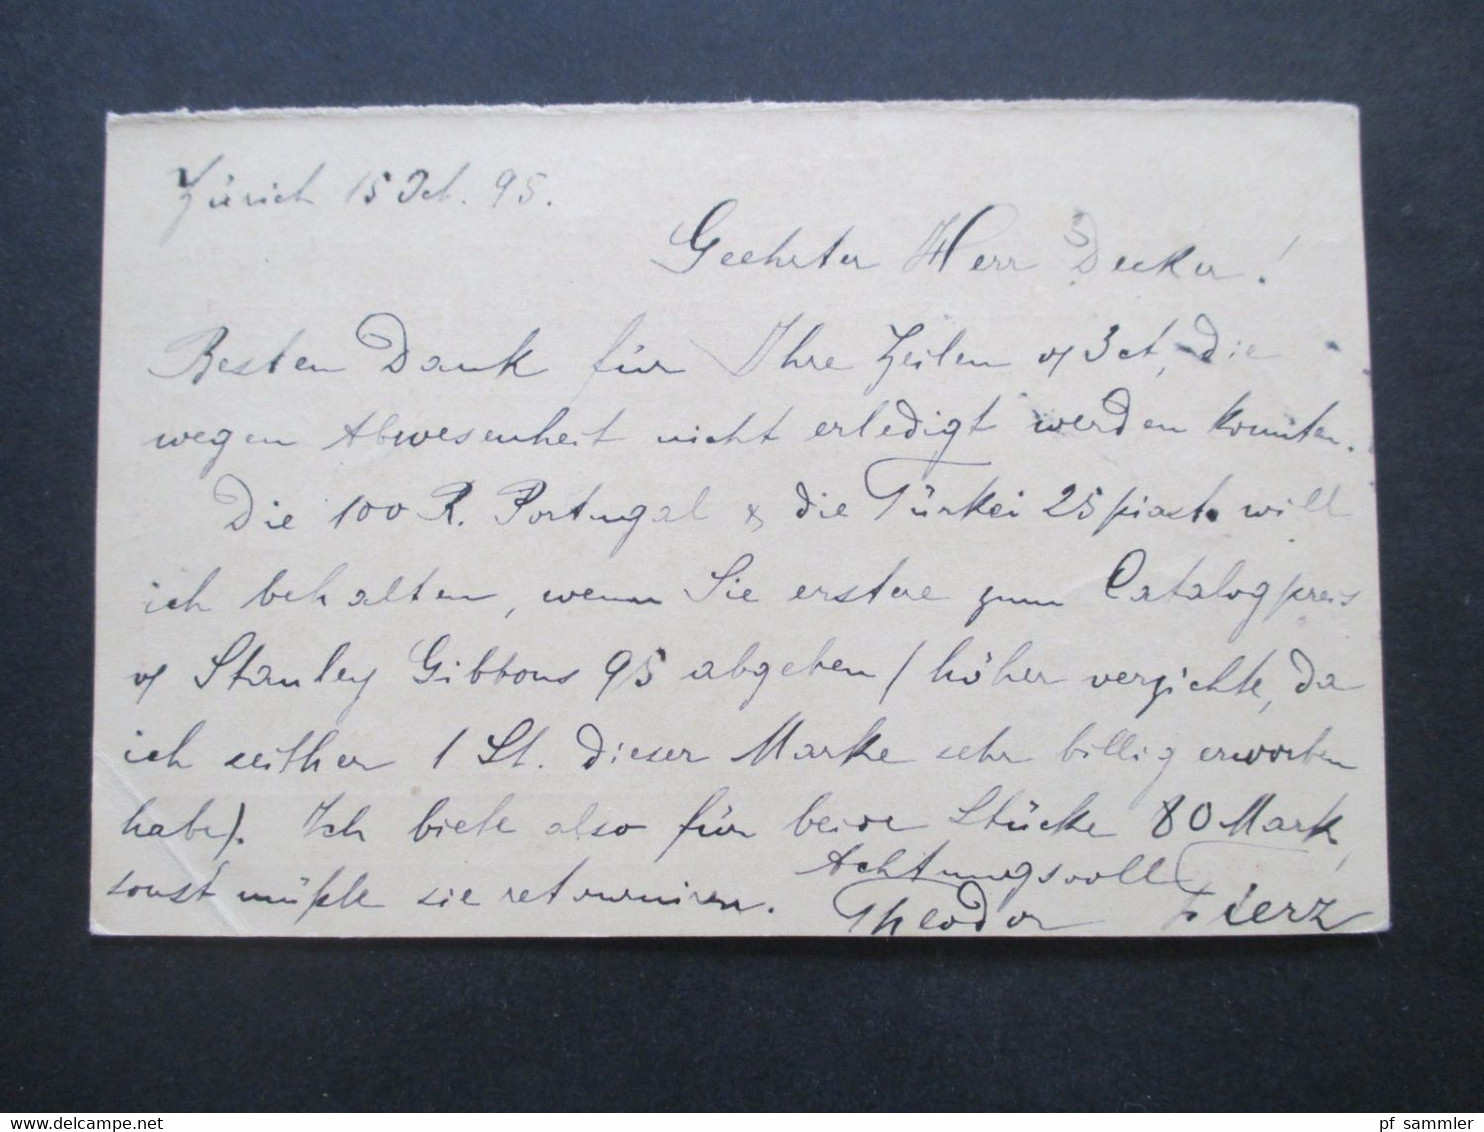 Zürich 15 Oct. 95.
Geehrter Herr Decker!
Besten Dank für Ihre Zeilen v/ 3 ct, die
wegen Abwesenheit nicht erledigt werden konnten.
Die 100 R. Portugal & die Türkei 25 piast. will
ich behalten, wenn Sie erstere zum Catalogpreis
v/ Stanley Gibbons 95 abgeben (höher verzichte, da
ich seither 1 St. dieser Marke sehr billig erworben
habe). Ich biete also für beide Stücke 80 Mark,
sonst müßte sie retourniren.
Achtungsvoll
Theodor Fierz
www.delcampe.net
pf_sammler